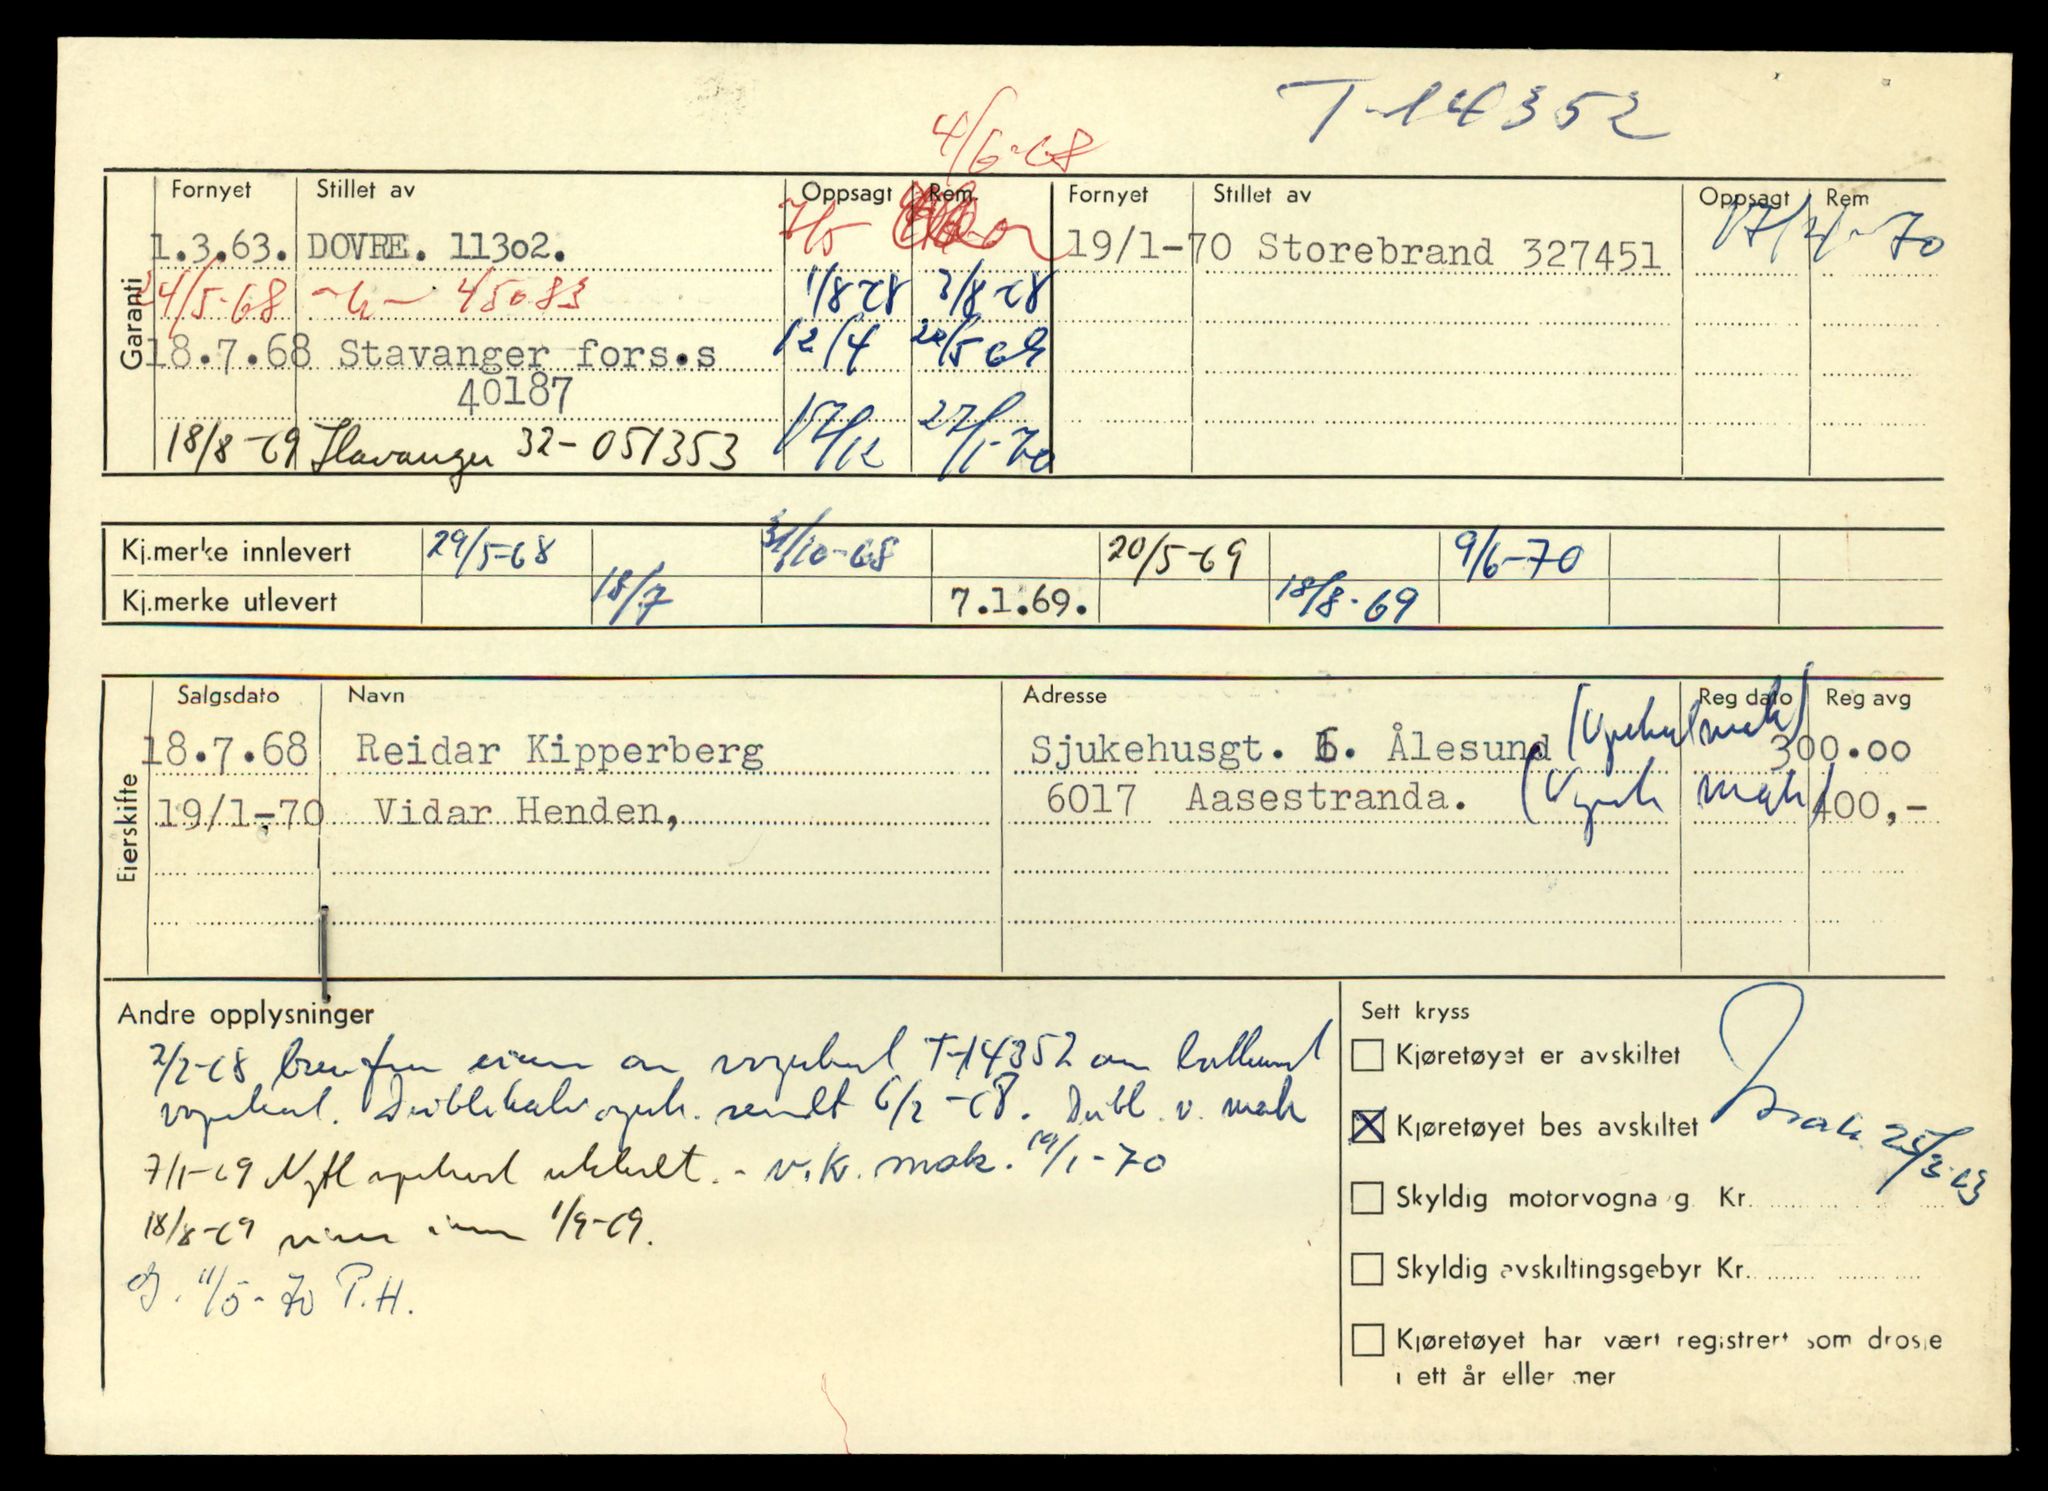 T-14352
4/6-68
Garanti
Fornyet Stillet av Oppsagt Rem. Fornyet Stillet av Oppsagt Rem
1.3.63. DOVRE. 11302. 7/5 19/1-70 Storebrand 327451 17/4-70
24/5-68 -"- 45083 1/8-68 3/8-68
18.7.68 Stavanger fors.s 12/4 22/5 69
40187
18/8-69 Stavanger 32-051353 17/12 27/1-70
Kj.merke innlevert 29/5-68 31/10-68 20/5-69 9/6-70
Kj.merke utlevert 18/7 7.1.69. 18/8-69
Eierskifte
Salgsdato Navn Adresse Reg dato Reg avg
18.7.68 Reidar Kipperberg Sjukehusgt. 6. Ålesund (Vognkort mak) 300.00
19/1-70 Vidar Henden, 6017 Aasestranda. (Vognk mak) 400,-
Andre opplysninger
2/2-68 T-14352
vognkort. sendt 6/2-68. Dubl. v. mak
7/1-69 Nytt vognkort utstedt. - v.k. mak. 19/1-70
18/8-69 1/9-69.
11/5-70 P.H.
Sett kryss
Kjøretøyet er avskiltet
Kjøretøyet bes avskiltet mak. 25/3-63
Skyldig motorvognavg Kr.
Skyldig avskiltingsgebyr Kr.
Kjøretøyet har vært registrert som drosje
i ett år eller mer